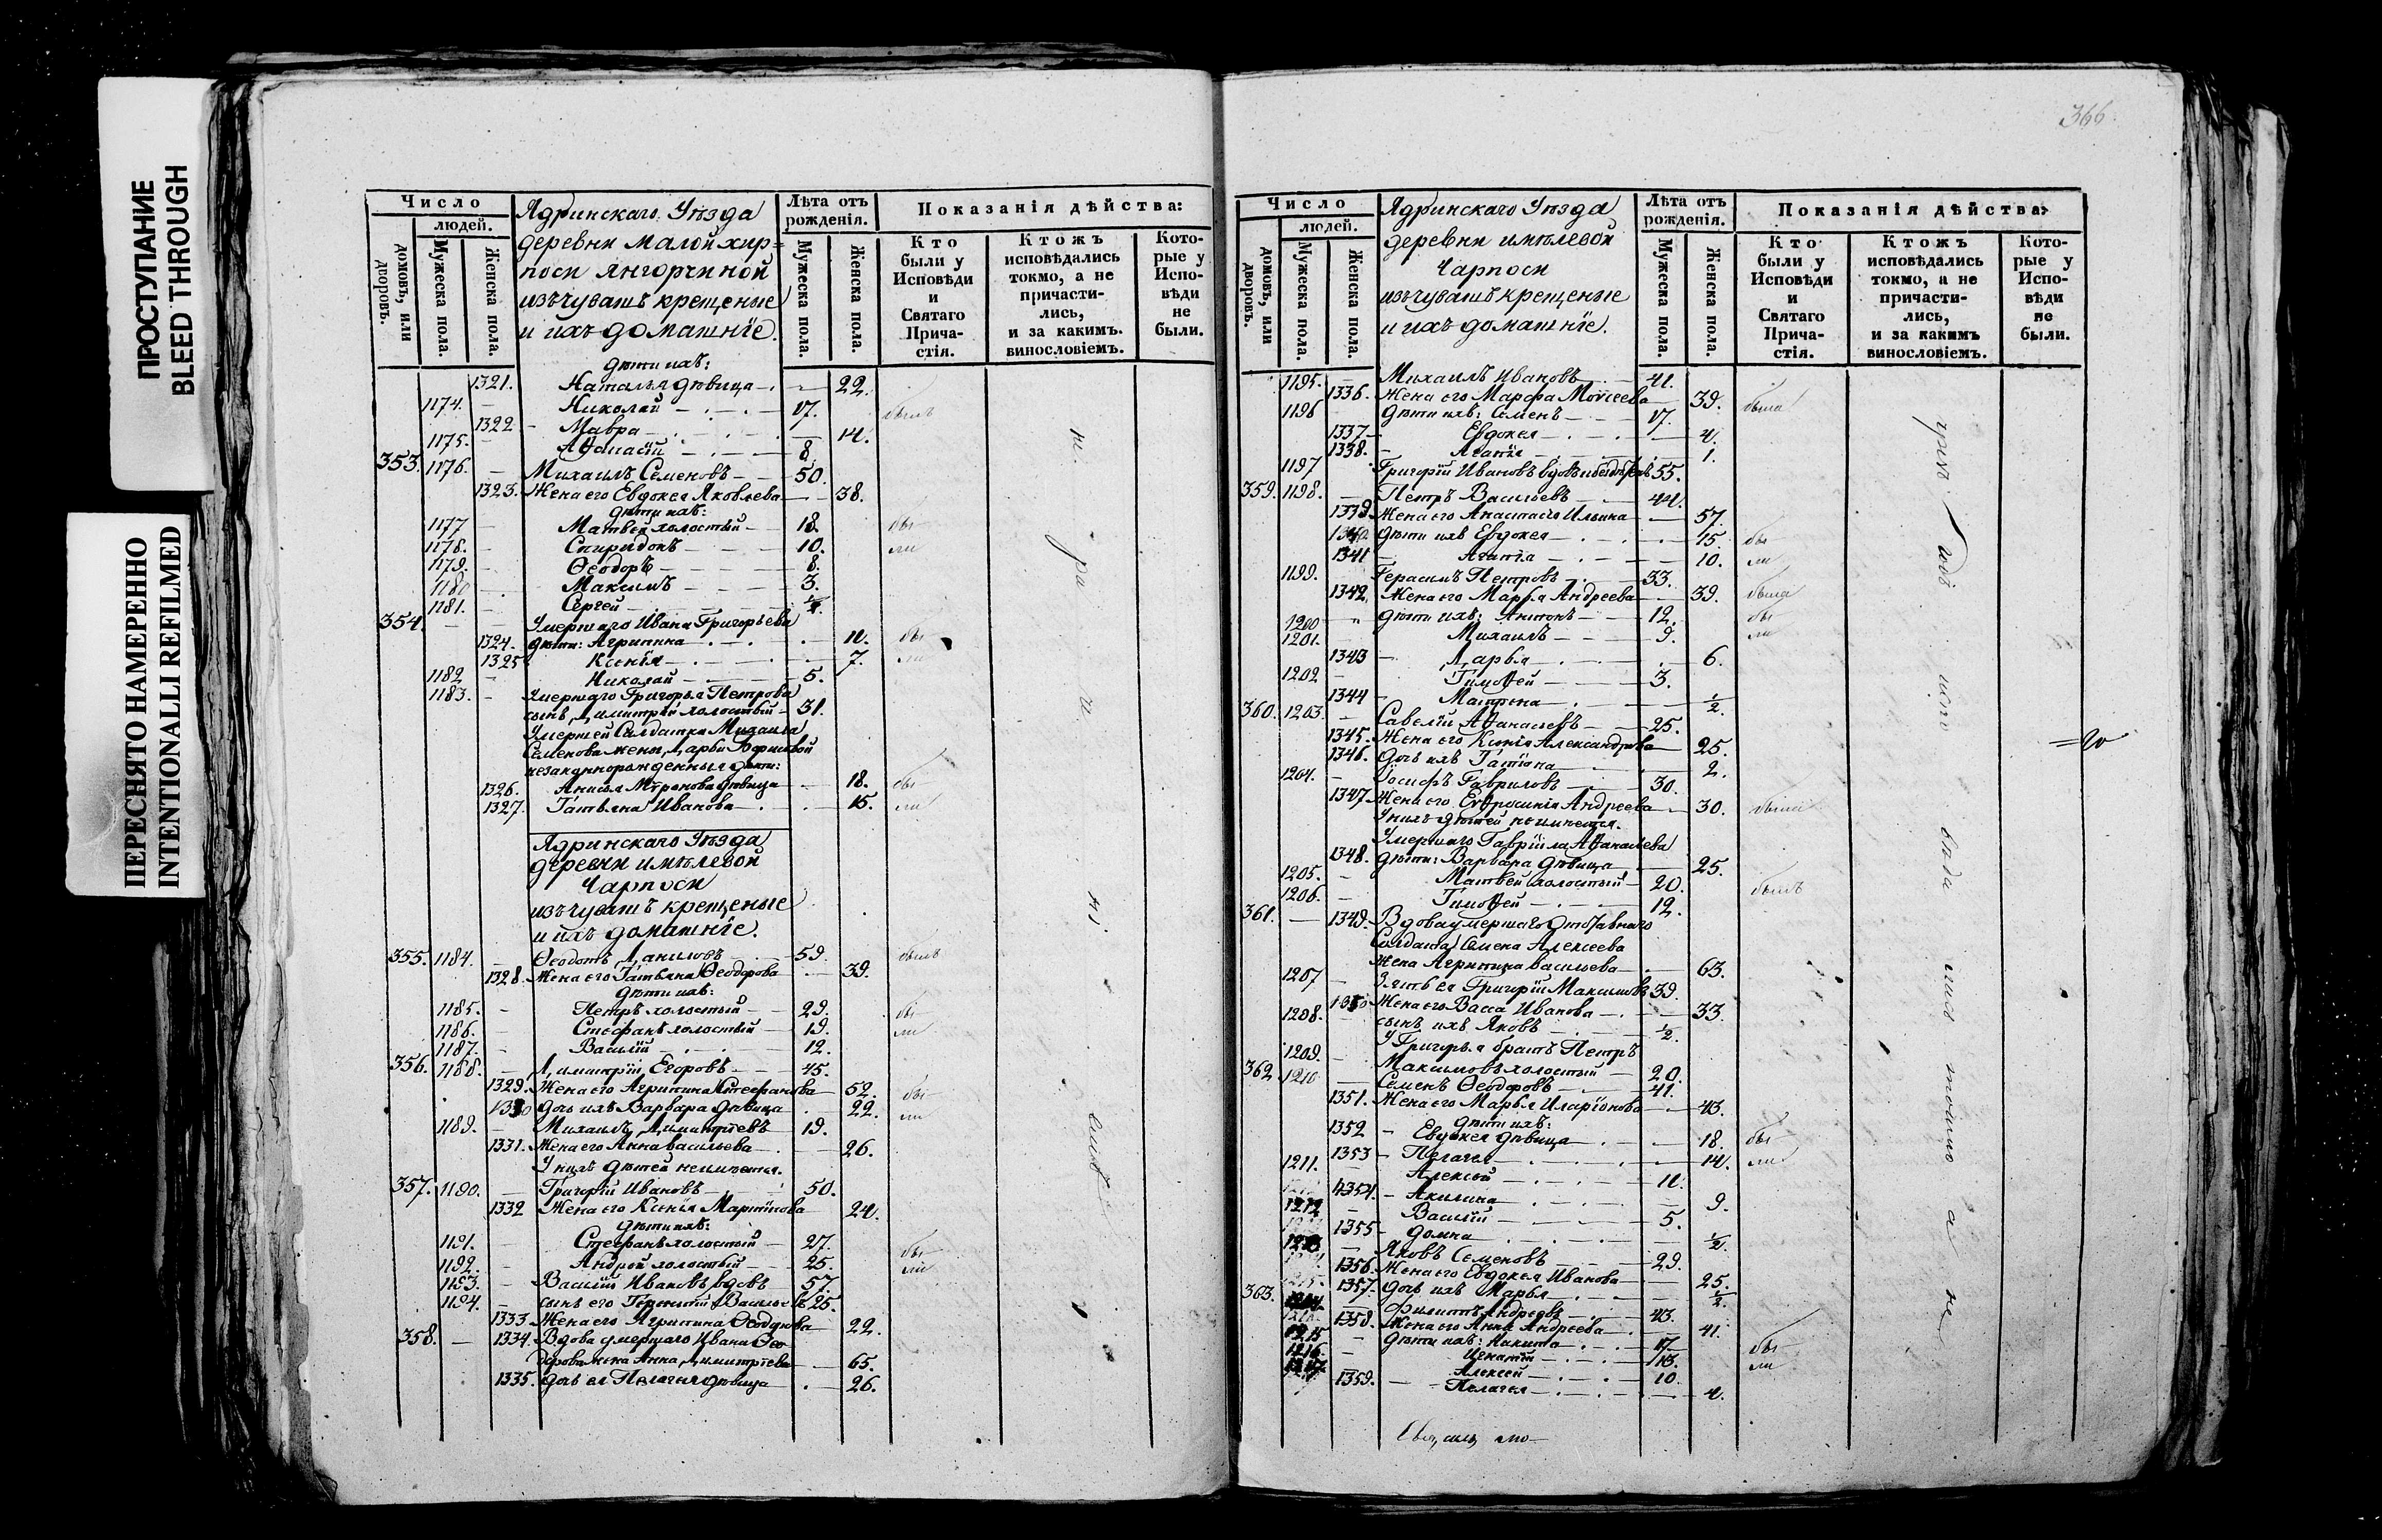 ПРОСТУПАНИЕ
BLEED THROUGH
ПЕРЕСНЯТО НАМЕРЕННО
INTENTIONALLI REFILMED
Число
людей.
домовъ, или дворовъ.
Мужеска пола.
Женска пола.
Ядринскаго Уѣзда
деревни Малой хир-
поси Янгорчиной
изъ чувашъ крещеные
и ихъ домашніе.
Лѣта отъ рожденія.
Мужеска пола.
Женска пола.
Показанія дѣйства:
Кто были у Исповѣди и Святаго Прича- стія.
Ктожъ исповѣдались токмо, а не причасти- лись, и за какимъ. винословіемъ.
Кото- рые у Испо- вѣди не были.
дѣти ихъ:
1321. Наталья дѣвица 22.
1174. Николай 17. былъ
1322 Мавра 14.
1175. Аѳанасій 8.
353. 1176. Михаилъ Семеновъ 50.
1323. Жена его Евдокея Яковлева 38.
дѣти ихъ:
1177 Матвей холостый 18. бы
1178. Спиридонъ 10. ли
1179. Ѳеодоръ 8.
1180 Максимъ 3.
1181. Сергей
354. Умершаго Ивана Григорьева
1324. дѣти: Агрипина бы
1325 Ксенія 7. ли
1182 Николай 5.
1183. Умершаго Григорья Петрова
сынъ Димитрій холостый 31.
Умершей Салдатки Михаила
Семенова жены Дарьи Борисовой
незаконнорожденныя дѣти:
1326. Анисья Миронова дѣвица 18. бы
1327. Татьяна Иванова 15. ли
Ядринскаго Уѣзда
деревни имѣлевой
Чарпоси
изъ чувашъ крещеные
и ихъ домашніе.
355. 1184. Ѳеодотъ Даниловъ 59. былъ
1328. Жена его Татьяна Ѳеодорова 39.
дѣти ихъ:
1185. Петръ холостый 29. бы
1186. Стефанъ холостый 19. ли
1187. Василій 12.
356. 1188. Димитрій Егоровъ 45.
1329. Жена его Агрипина Стефанова 52. бы
1330 дочь ихъ Варвара дѣвица 22. ли
1189. Михаилъ Димитріевъ 19.
1331. Жена его Анна васильева 26.
У нихъ дѣтей неимѣется.
357. 1190. Григорій Ивановъ 50.
1332 Жена его Ксенія Мартинова 24.
дѣти ихъ:
1191. Стефанъ холостый 27. бы
1192. Андрей холостый 25. ли
1193. Василій Ивановъ вдовъ 57.
1194. сынъ его Терентій Васильевъ 25.
1333 Жена его Агрипина Ѳеодорова 22.
358. 1334. Вдова умершаго Ивана Ѳео
дорова жена Анна Димитріева 65.
1335. дочь ея Пелагея дѣвица 26.
366
Число
людей.
домовъ, или дворовъ.
Мужеска пола.
Женска пола.
Ядринскаго Уѣзда
деревни имѣлевой
Чарпоси
изъ чувашъ крещеные
и ихъ домашніе.
Лѣта отъ рожденія.
Мужеска пола.
Женска пола.
Показанія дѣйства:
Кто были у Исповѣди и Святаго Прича- стія.
Ктожъ исповѣдались токмо, а не причасти- лись, и за какимъ винословіемъ.
Кото- рые у Испо- вѣди не были.
1195. Михаилъ Ивановъ 41.
1336. Жена его Марфа Моисеева 39. была
1196 дѣти ихъ: Семенъ 17.
1337 Евдокея 4.
1338. Агапія 1.
1197 Григорій Ивановъ вдовъ 55.
359. 1198. Петръ Васильевъ 44.
1339 Жена его Анастасія Ильина 57.
1340 дѣти ихъ Евдокея 15. бы
1341 Агапія 10. ли
1199. Герасимъ Петровъ 33.
1342. Жена его Марья Андреева 39. была
1200 дѣти ихъ: Антонъ 12. бы
1201. Михаилъ 9. ли
1343 Дарья 6.
1202 Тимоѳей 3.
1344 Матрена 1/2.
360. 1203. Савелій Аѳанасьевъ 25.
1345. Жена его Ксенія Александрова 25.
1346. дочь ихъ Татіана 2.
1204. Іосифъ Гавриловъ 30.
1347 Жена его Евфросинія Андреева 30. были
У нихъ дѣтей неимѣется.
Умершаго Гавріила Аѳанасьева
1348. дѣти: Варвара дѣвица 25.
1205. Матвей холостый 20. былъ
1206. Тимоѳей 12.
361. 1349. Вдова умершаго Отставнаго
Солдата Семена Алексеева
жена Агрипина васильева 63.
1207 Зять ея Григорій Максимовъ 39.
1350 Жена его Васса Иванова 33.
1208. сынъ ихъ Яковъ 1/2.
У Григорья братъ Петръ
1209. Максимовъ холостый 20.
362 1210 Семенъ Ѳеодоровъ 41.
1351. Жена его Марья Иларіонова 43.
дѣти ихъ:
1352 Евдокея дѣвица 18. бы
1353 Пелагея 14. ли
1211. Алексей
1354. Акилина 9.
1212 Василій 5.
1355 Домна 1/2.
1213 Яковъ Семеновъ 29.
1356. Жена его Евдокея Иванова 25.
1357. дочь ихъ Марья 1/2.
363. Филиппъ Андреевъ 43.
1358. Жена его Анна Андреева 41.
1215 дѣти ихъ: Никита 17 бы
1216 Игнатій 13. ли
1217 Алексей 10.
1359. Пелагея 4.